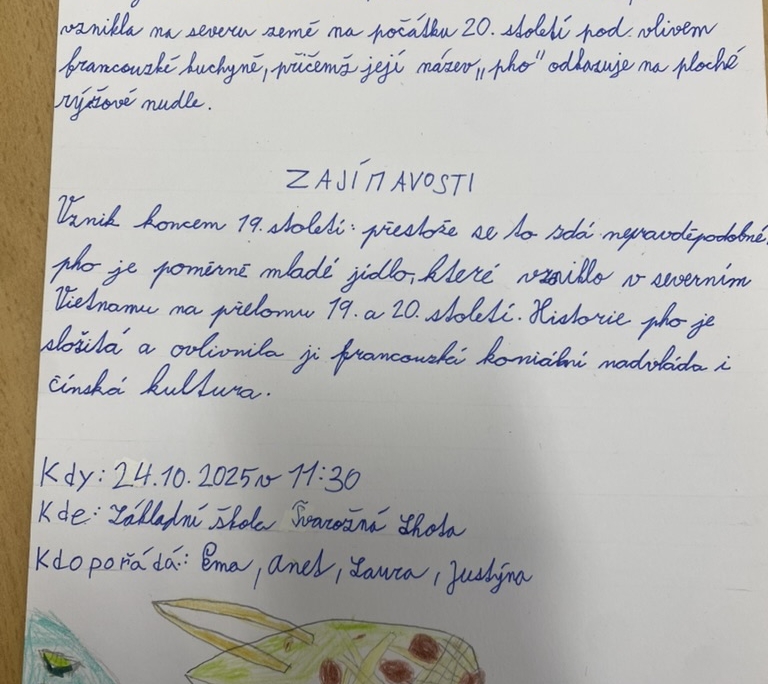 vznikla na severu země na počátku 20. století pod vlivem
francouzké kuchyně, přičemž její název „pho" odkazuje na ploché
rýžové nudle.
ZAJÍMAVOSTI
Vznik koncem 19. století: přestože se to zdá nepravděpodobné,
pho je poměrně mladé jídlo, které vzniklo v severním
Vietnamu na přelomu 19. a 20. století. Historie pho je
složitá a ovlivnila ji francouzká koniální nadvláda i
čínská kultura.
Kdy: 24.10.2025 v 11:30
Kde: Základní škola Tvarožná Lhota
Kdo pořádá: Ema, Anet, Laura, Justýna